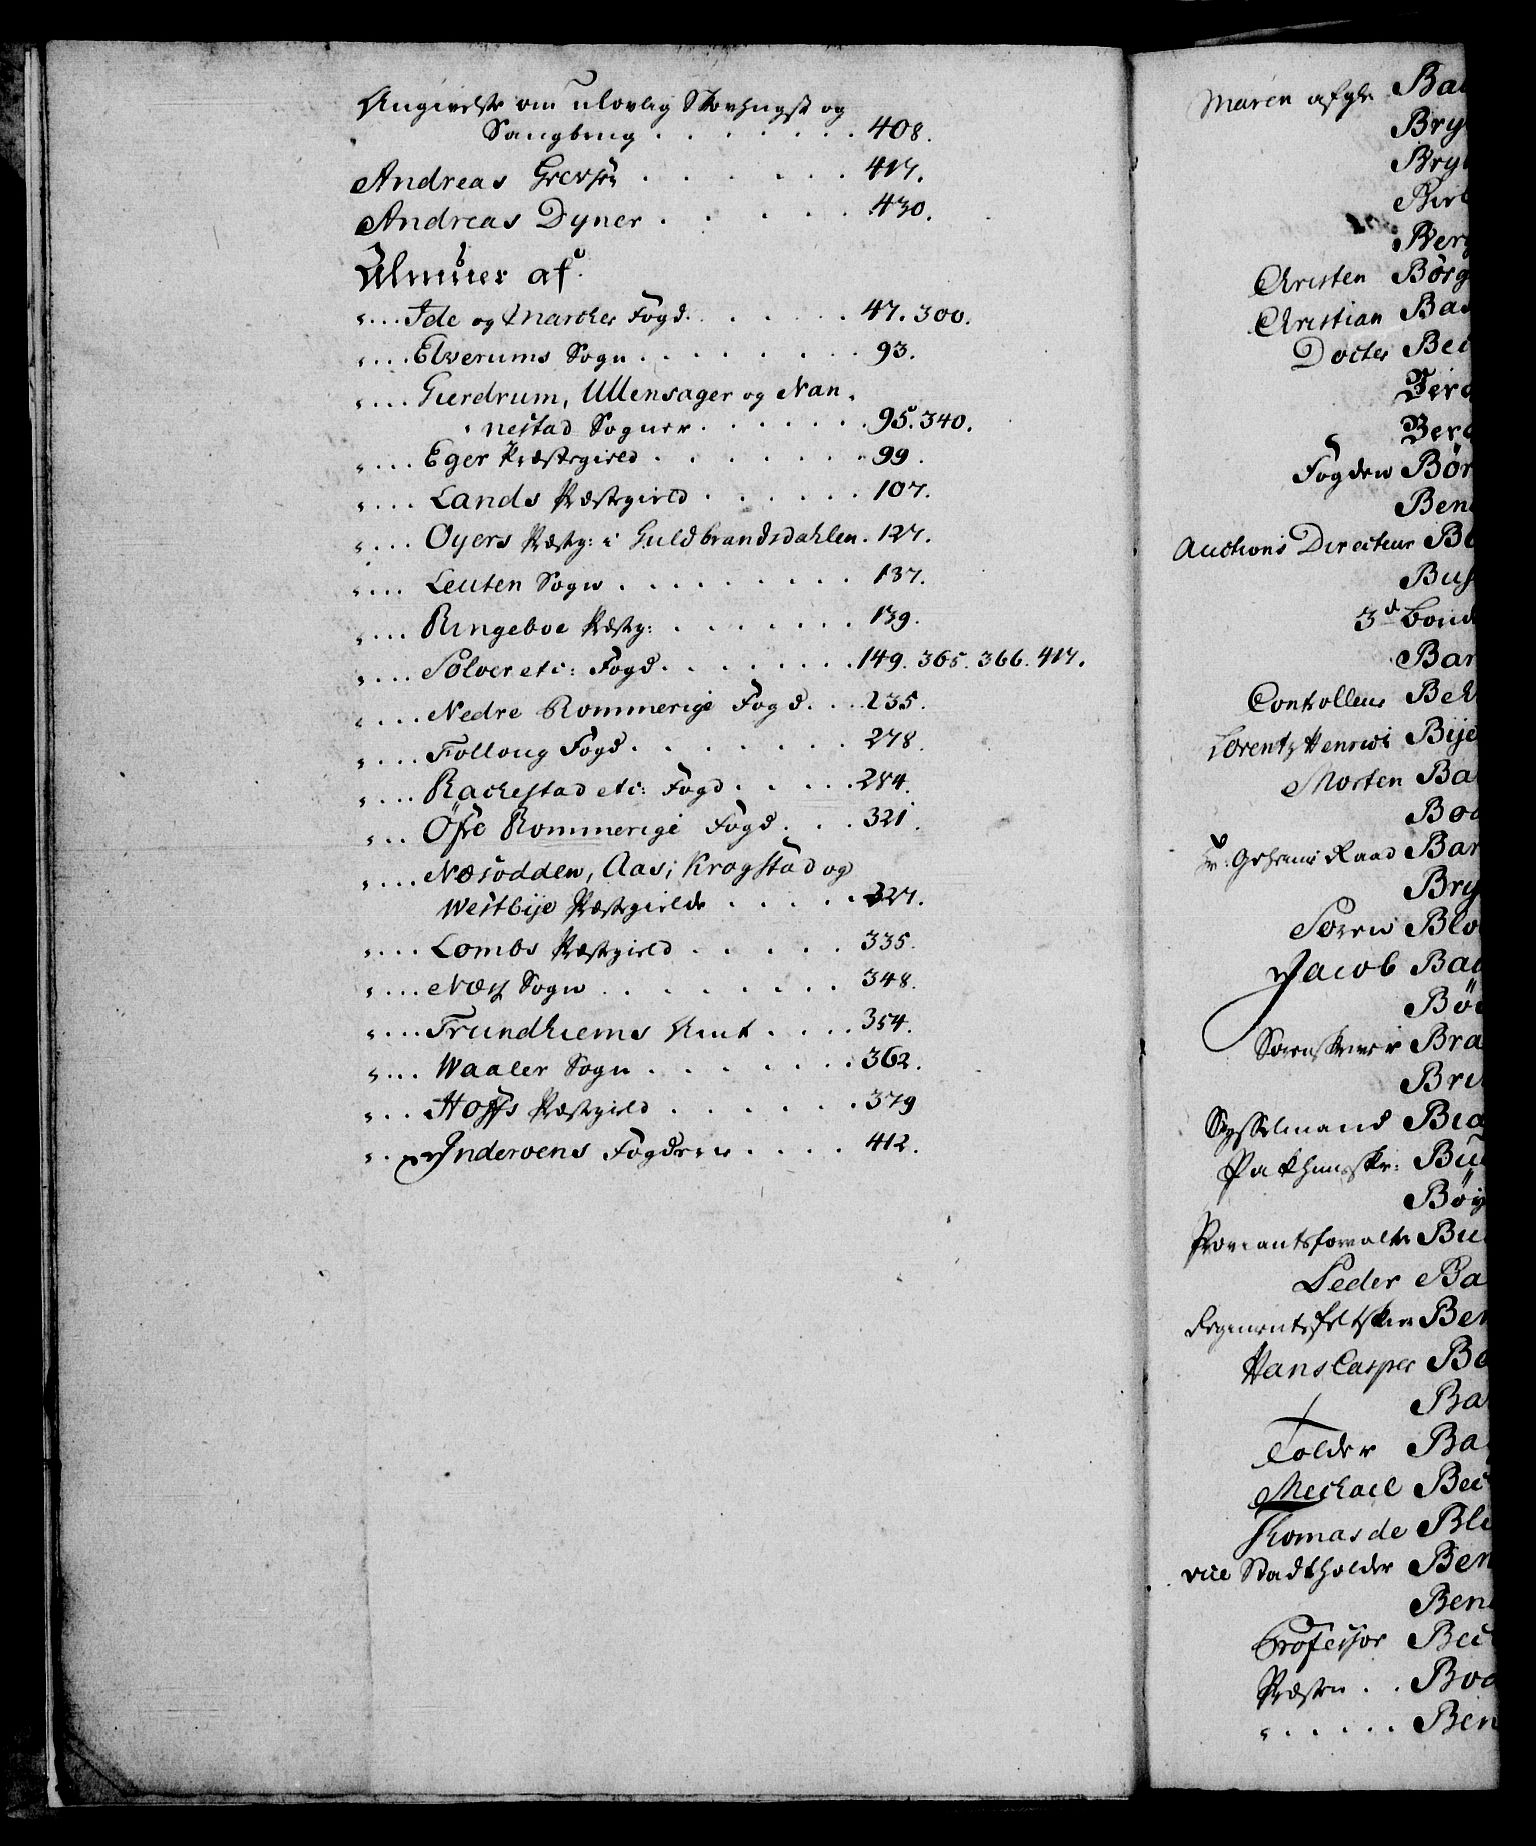 Angivelse om ulovlig Skovhugst og
Saugbrug . . . . . . . 408.
Andreas Greversen . . . . . . 417.
Andreas Dyner . . . . . 430.
Almuer af
" . . . Ide og Marker Fogd. . . . . . 47. 300.
" . . . Elverums Sogn . . . . . . . . 93.
" . . . Gierdrum, Ullensager og Nan-
nestad Sogner . . . . . . . 95. 340.
" . . . Eger Præstegield . . . . . . . 99.
" . . . Lands Præstegield . . . . . . 107.
" . . . Oyers Præstg: i Guldbrandsdahlen . 127.
" . . . Leuten Sogn . . . . . . . . . 137.
" . . . Ringeboe Præstg: . . . . . . . . 139.
" . . . Soloer etc: Fogd . . . . . . . . 149. 365. 366. 417.
" . . . Nedre Rommerige Fogd. . . . 235.
" . . . Folloug Fogd . . . . . . . . 278.
" . . . Rachestad etc: Fogd . . . . . 284.
" . . Öfre Rommerige Fogd . . . . 321.
" . . . Næsodden, Aas, Krogstad og
Westbye Præstegielde . . . . . 327.
" . . . Lombs Præstegield . . . . . 335.
" . . . Næss Sogn . . . . . . . . . 348.
" . . . Trundhiems Amt . . . . 354.
" . . . Waaler Sogn . . . . . . . 362.
" . . . Hoffs Præstegield . . . . . . 379
" . . Inderoens Fogderie . . . . 412.
Maren afgle Bal
Bry
Bry
Birc
Berg
Christen Börg
Christian Bas
Docter Bec
Berg
Berg
Fogden Bör
Ben
Auctions Directeur
Bus
3de Bönd
Bar
Controlleur Beh
Lorentz Henrich Bije
Morten Ba
Boe
Hr: Geheime Raad Bar
Bry
Sören Blo
Jacob Bac
Böe
Sorenskriver Bra
Bri
Sysselmand
Pakhuusskr: Bu
Böy
Proviantsforvalter Bu
Peder Ba
Regimentsfeltskier Ber
Hans Casper Bo
Ba
Tolder Ba
Michael Bec
Thomas de Bli
vice Stadtholder Ben
Ben
Professor Bec
Præsten . . Boe
" . . . . . . Ben